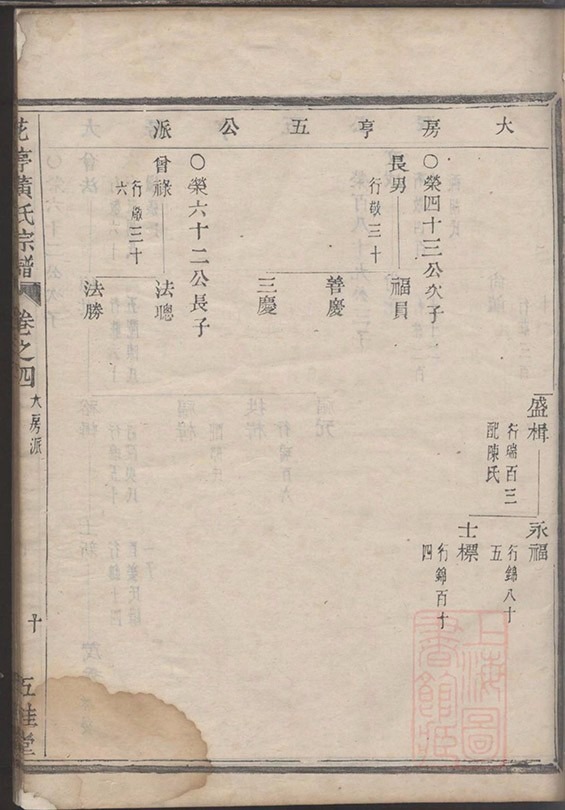 大房亨五公派
盛楫
行瑞百三
配陳氏
永福
行錦八十
五
士標
行錦百十
四
○榮四十三公次子
長男
行敬三十
福員
善慶
三慶
○榮六十二公長子
曾祿
行敬三十
六
法聰
法勝
亭黃氏宗譜
卷之四
大房派
十
五桂堂
上海圖
書館藏